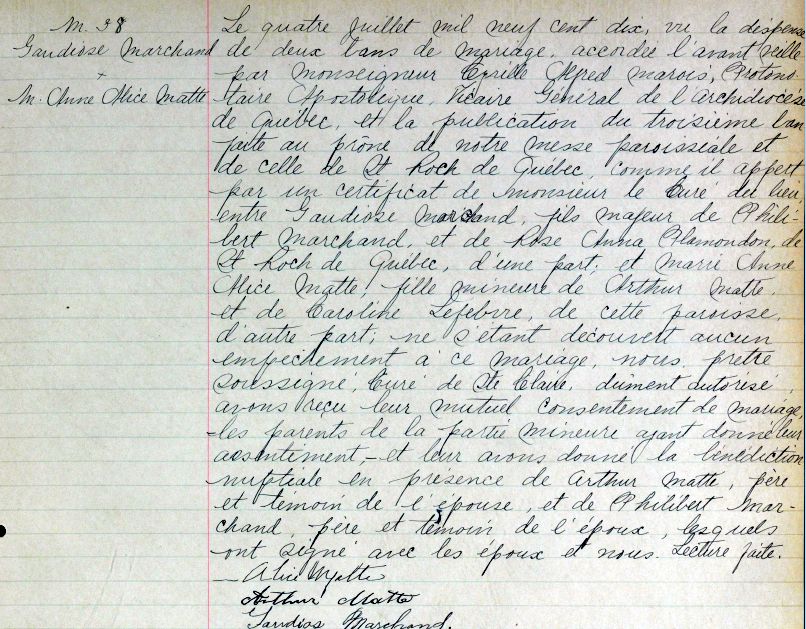 M. 38
Gaudiose Marchand
+
M. Anne Alice Matte
Le quatre Juillet mil neuf cent dix, vu la dispense
de deux bans de mariage, accordée l'avant veille
par Monseigneur Cyrille Alfred Marois, Protono-
taire Apostolique, Vicaire Général de l'Archidiocèse
de Québec, et la publication du troisième ban
faite au prône de notre messe paroissiale et
de celle de St Roch de Québec, comme il appert
par un certificat de monsieur le Curé du lieu,
entre Gaudiose Marchand, fils majeur de Phili-
bert Marchand, et de Rose Anna Plamondon, de
St Roch de Québec, d'une part; et Marie Anne
Alice Matte, fille mineure de Arthur Matte,
et de Caroline Lefebvre, de cette paroisse,
d'autre part; ne s'étant découvert aucun
empêchement à ce mariage, nous, prêtre
soussigné, Curé de Ste Claire, dument autorisé,
avons reçu leur mutuel consentement de mariage,
-les parents de la partie mineure ayant donné leur
assentiment,- et leur avons donné la bénédiction
nuptiale en présence de Arthur Matte, père
et témoin de l'épouse, et de Philibert Mar-
chand, père et témoin de l'époux, lesquels
ont signé avec les époux et nous. Lecture faite.
Alice Matte
Arthur Matte
Gaudios Marchand.